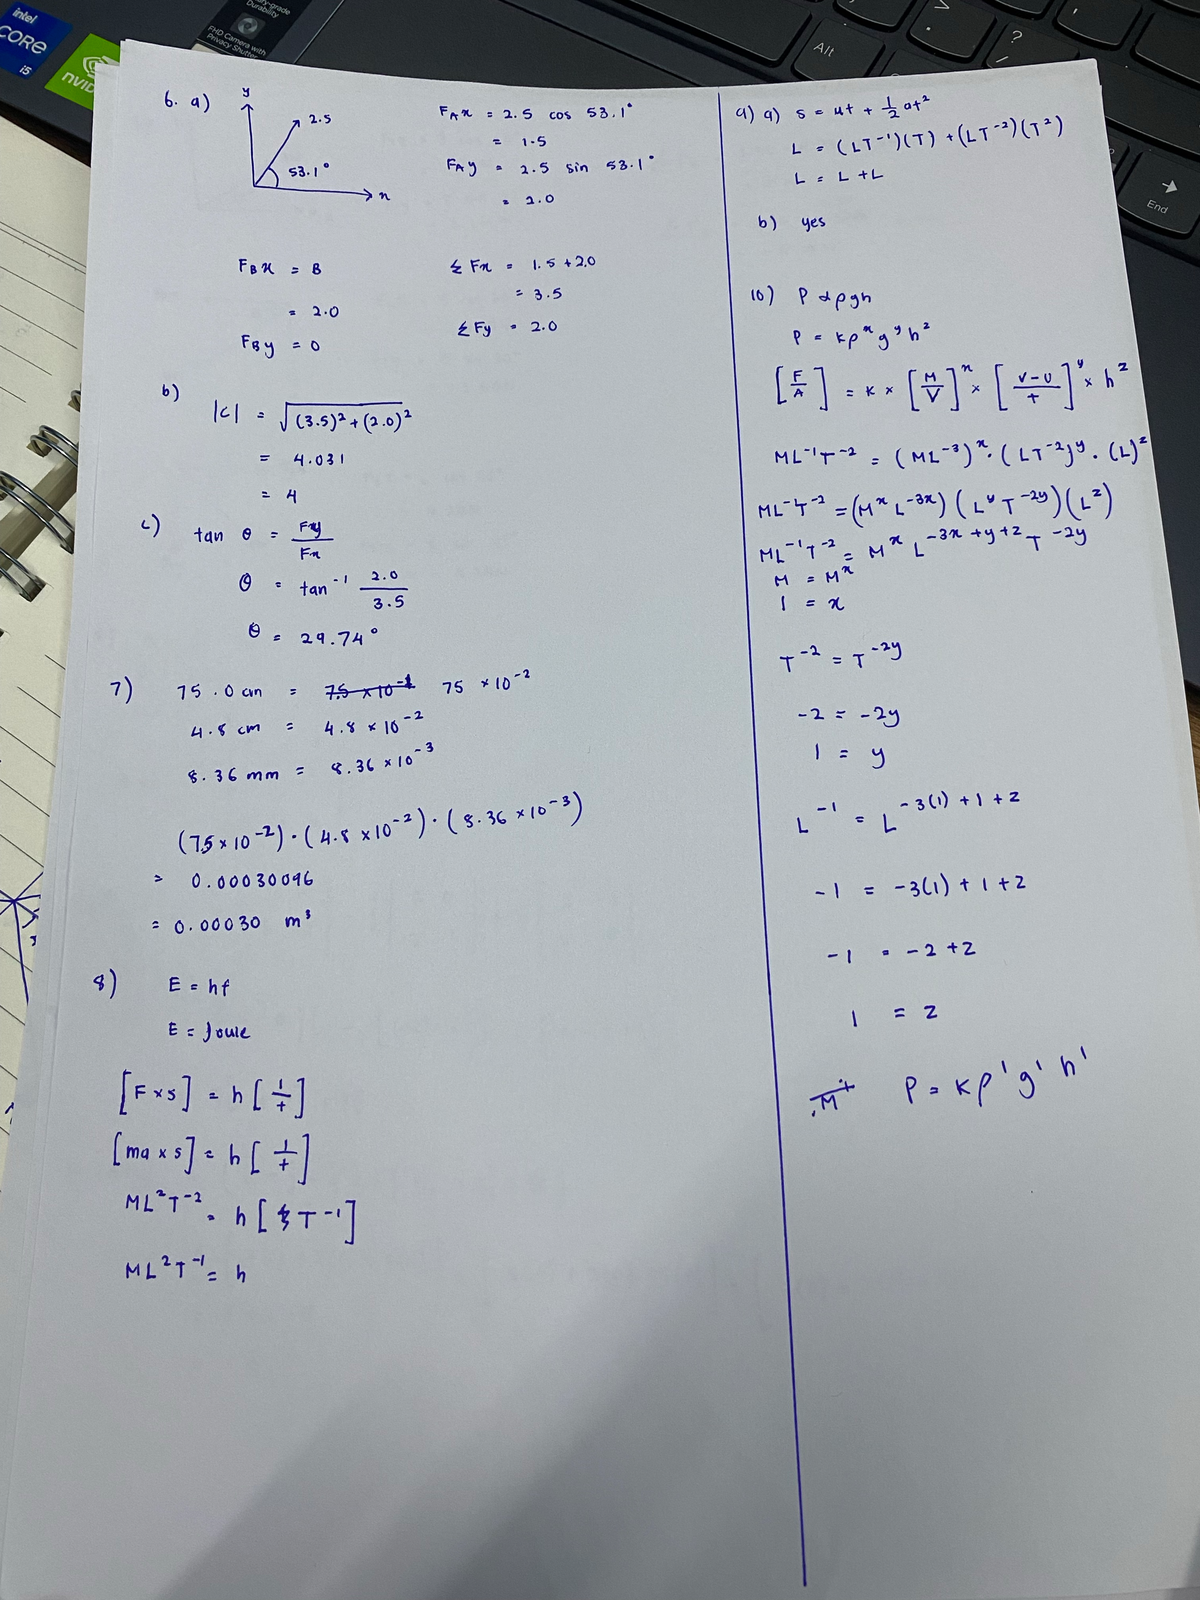 intel
CORE
i5
NVID
ry-grade
Durability
FHD Camera with
Privacy Shutter
Alt
>
.
?
/
End
6. a)
y
2.5
53.1°
x
FAx = 2.5 cos 53.1°
= 1.5
FAy = 2.5 sin 53.1°
= 2.0
FBx = B
= 2.0
FBy = 0
ΣFx = 1.5 + 2.0
= 3.5
ΣFy = 2.0
b)
|c| = √(3.5)² + (2.0)²
= 4.031
= 4
c)
tan θ = Fy/Fx
θ = tan⁻¹ 2.0/3.5
θ = 29.74°
7) 75.0 cm = 75 × 10⁻²
4.8 cm = 4.8 × 10⁻²
8.36 mm = 8.36 × 10⁻³
(75 × 10⁻²) · (4.8 × 10⁻²) · (8.36 × 10⁻³)
= 0.00030096
= 0.00030 m³
8) E = hf
E = Joule
[F × s] = h [1/t]
[ma × s] = h [1/t]
ML²T⁻² = h [T⁻¹]
ML²T⁻¹ = h
9) a) s = ut + ½ at²
L = (LT⁻¹)(T) + (LT⁻²)(T²)
L = L + L
b) yes
10) P α ρgh
P = kρˣgʸhᶻ
[F/A] = K × [M/V]ˣ × [V-U/t]ʸ × hᶻ
ML⁻¹T⁻² = (ML⁻³)ˣ · (LT⁻²)ʸ · (L)ᶻ
ML⁻T⁻² = (Mˣ L⁻³ˣ) (Lʸ T⁻²ʸ) (Lᶻ)
ML⁻¹T⁻² = Mˣ L⁻³ˣ⁺ʸ⁺ᶻ T⁻²ʸ
M = Mˣ
1 = x
T⁻² = T⁻²ʸ
-2 = -2y
1 = y
L⁻¹ = L⁻³⁽¹⁾⁺¹⁺ᶻ
-1 = -3(1) + 1 + z
-1 = -2 + z
1 = z
P = kρ¹g¹h¹